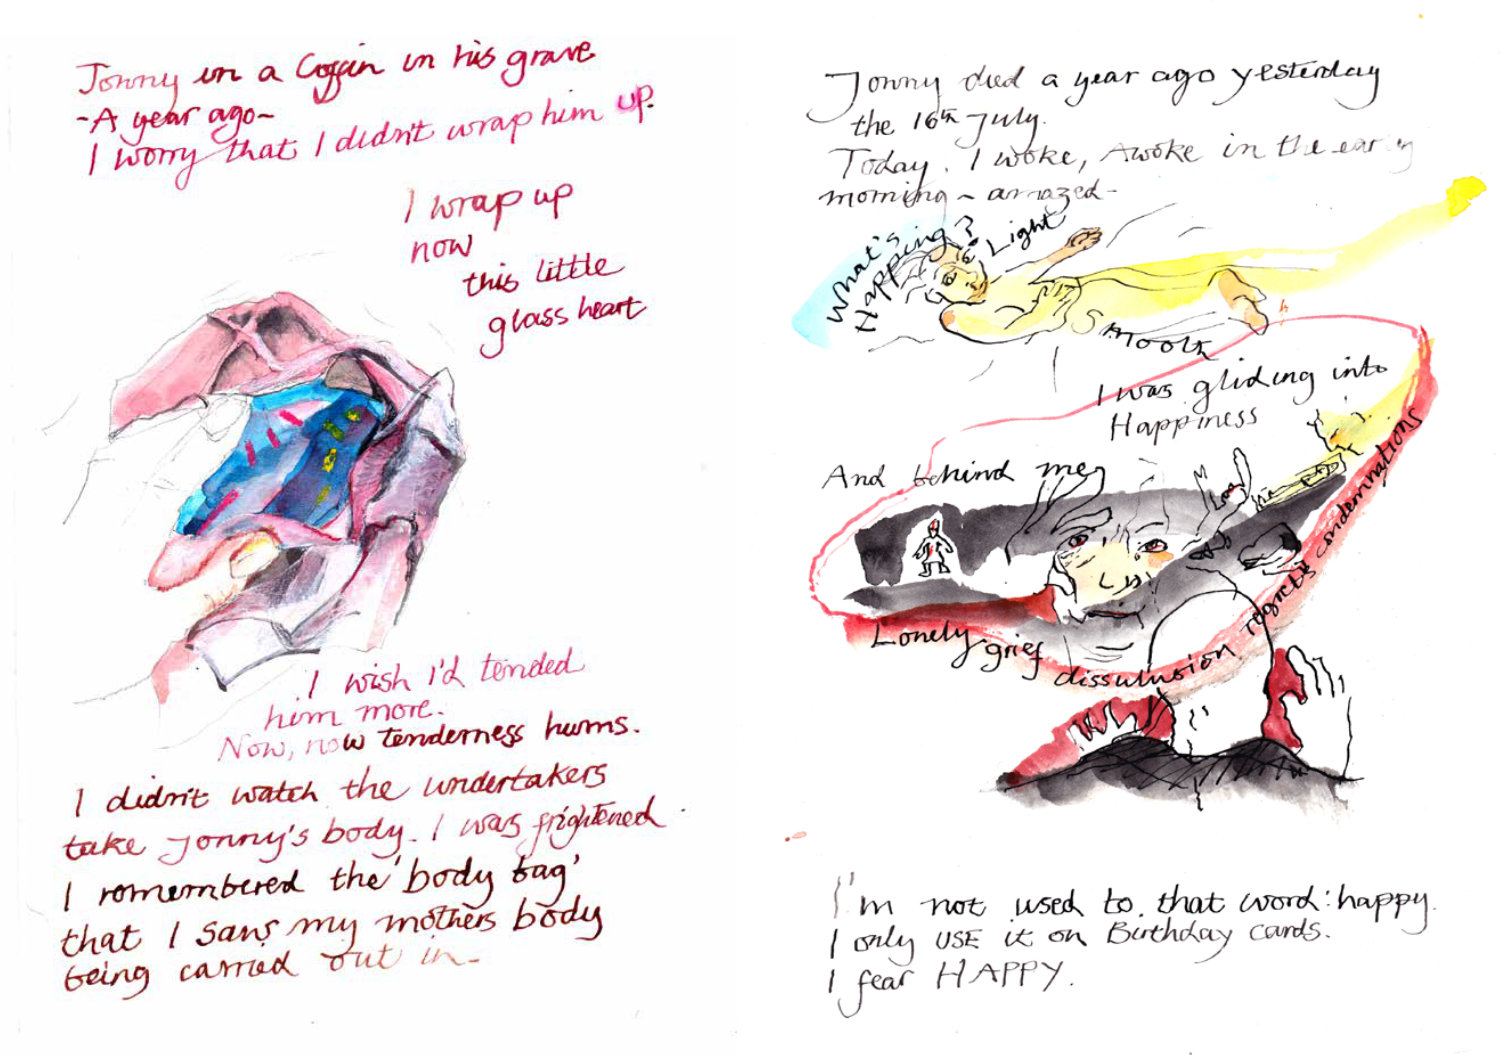 Jonny in a Coffin in his grave
-A year ago-
I worry that I didn't wrap him up.
I wrap up
now
this little
glass heart
I wish I'd tended
him more.
Now, now tenderness hums.
I didn't watch the undertakers
take Jonny's body. I was frightened
I remembered the 'body bag'
that I saw my mothers body
being carried out in-
Jonny died a year ago yesterday
the 16th July.
Today. I woke, Awoke in the early
morning ~ amazed-
What's
Happing?
Light
Smooth
I was gliding into
Happiness
And behind me,
Lonely grief dissulusion regrets condemnations
I'm not used to that word: happy.
I only USE it on Birthday cards.
I fear HAPPY.